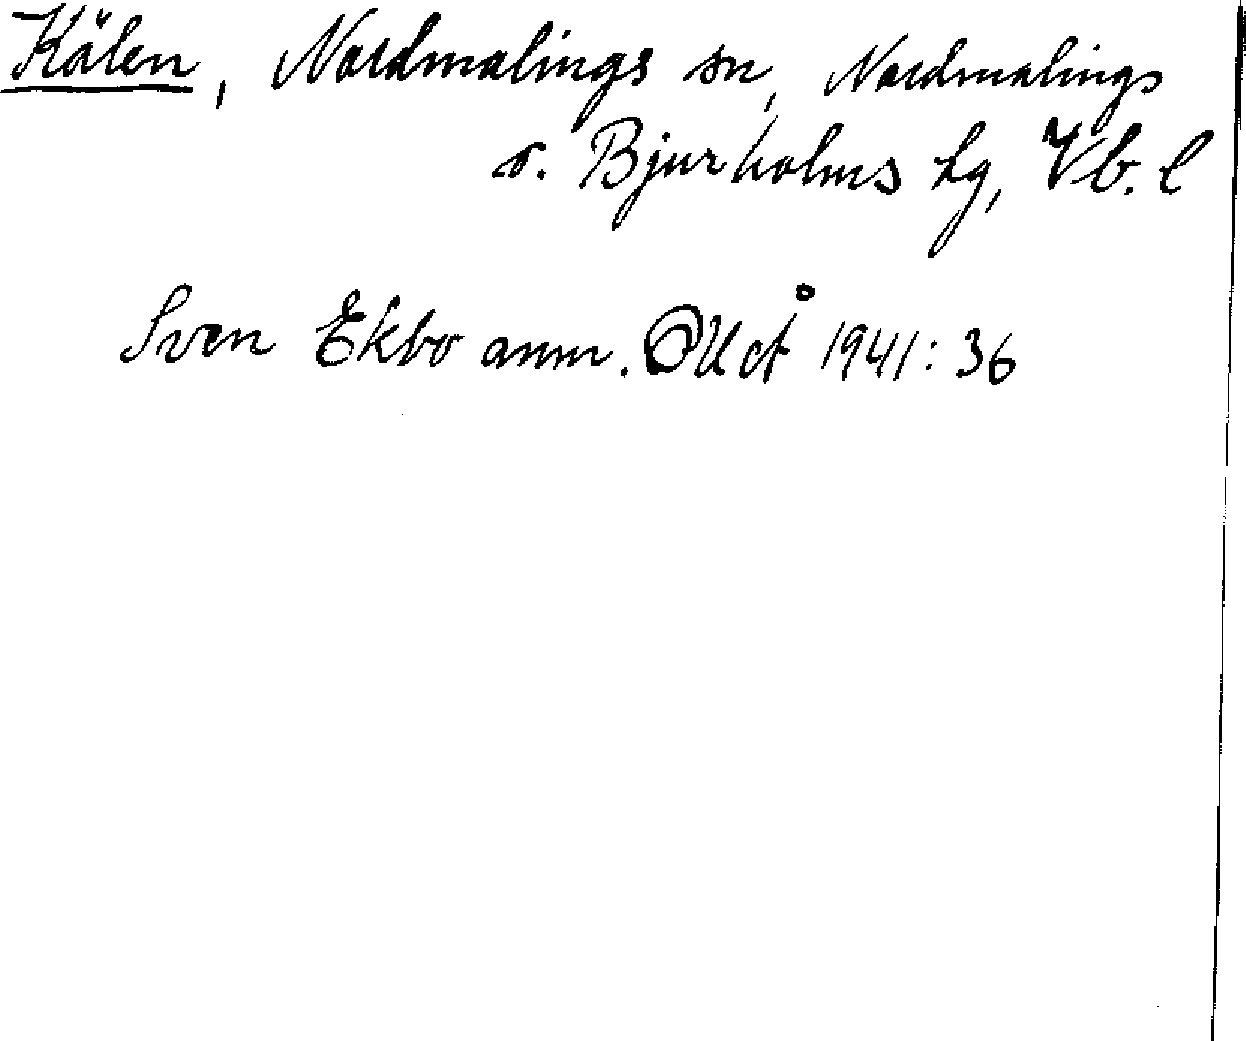 Kälen, Nordmalings sn, Nordmalings
o. Bjurholms tg, Vb. l
Sven Ekbo anm. OUÅ 1941: 36